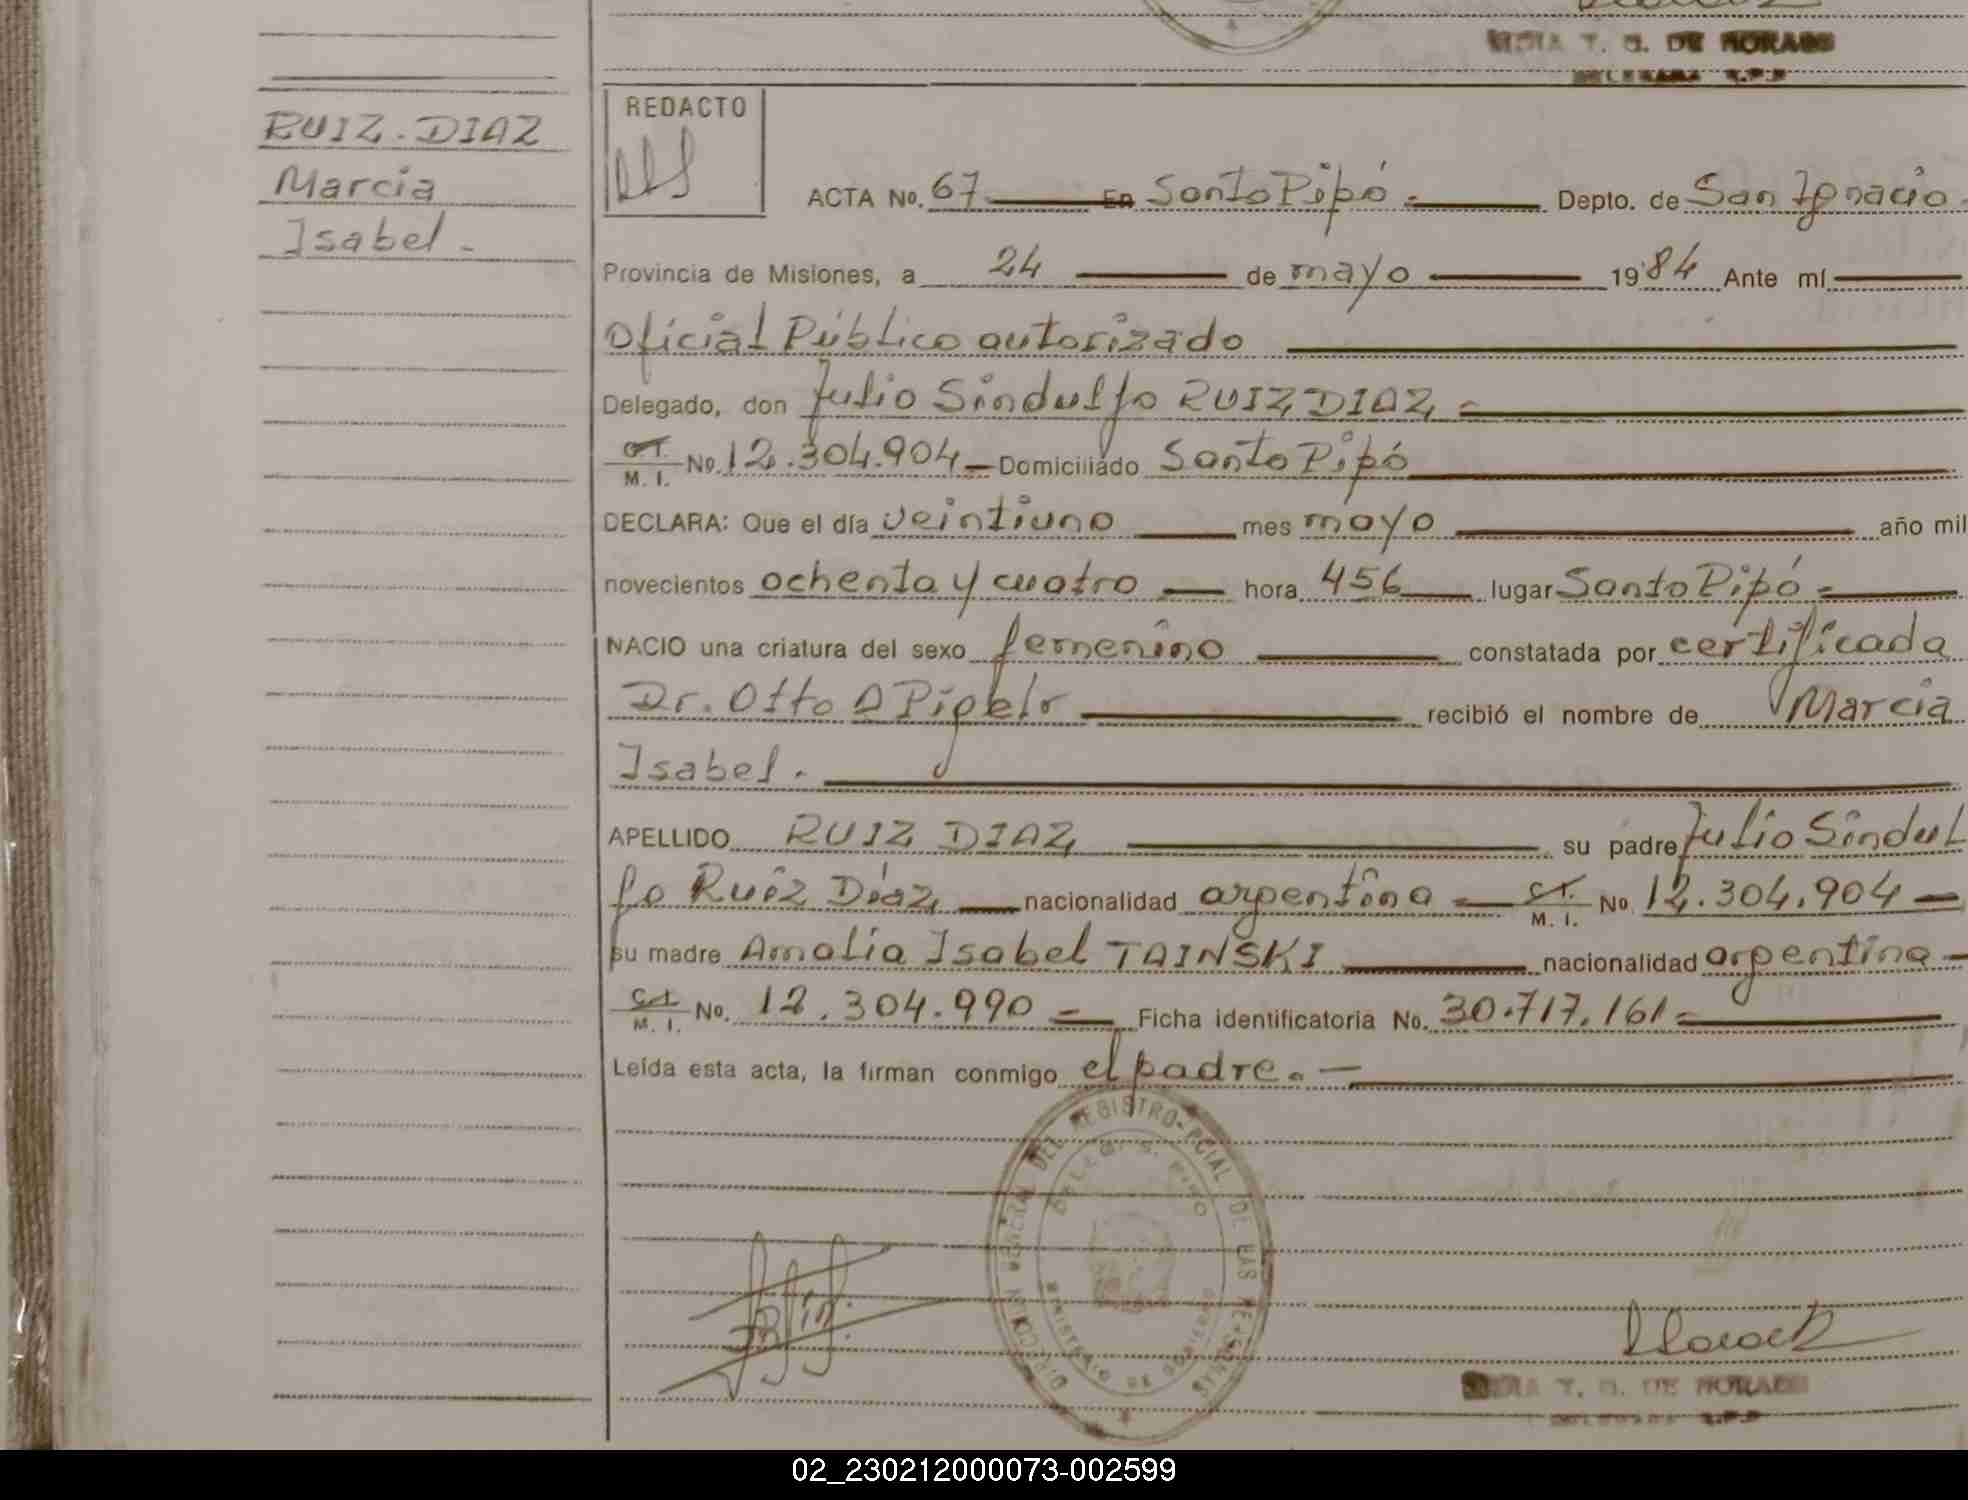 T. G. DE MORAES
RUIZ. DIAZ
Marcia
Isabel.
REDACTO
ACTA No. 67 En Santo Pipó Depto. de San Ignacio
Provincia de Misiones, a 24 de mayo 1984 Ante mí
Oficial Público autorizado
Delegado, don Julio Sindulfo RUIZ DIAZ
C.I. M. I. No. 12.304.904 Domiciliado Santo Pipó
DECLARA: Que el día veintiuno mes mayo año mil
novecientos ochenta y cuatro hora 456 lugar Santo Pipó
NACIO una criatura del sexo femenino constatada por certificada
Dr. Otto A recibió el nombre de Marcia
Isabel.
APELLIDO RUIZ DIAZ su padre Julio Sindul
fo Ruiz Díaz nacionalidad argentina C.I. M. I. No. 12.304.904
su madre Amalia Isabel TAINSKI nacionalidad argentina
C.I. M. I. No. 12.304.990 Ficha identificatoria No. 30.717.161
Leída esta acta, la firman conmigo el padre.
DIRECCION GENERAL DEL REGISTRO PCIAL DE LAS PERSONAS
MINISTERIO DE GOBIERNO
T. G. DE MORAES
02_230212000073-002599